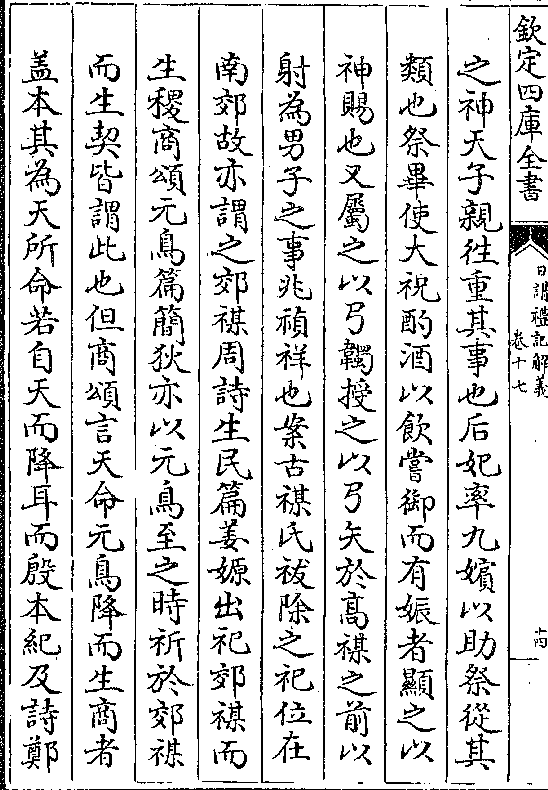 欽定四庫全書
日講禮記解義
卷十七
十四
之神天子親徃重其事也后妃率九嬪以助祭從其
類也祭畢使大祝酌酒以飲嘗御而有娠者顯之以
神賜也又屬之以弓韣授之以弓矢於髙禖之前以
射為男子之事兆禎祥也案古禖氏祓除之祀位在
南郊故亦謂之郊禖周詩生民篇姜嫄出祀郊禖而
生稷商頌元鳥篇簡狄亦以元鳥至之時祈於郊禖
而生契皆謂此也但商頌言天命元鳥降而生商者
盖本其為天所命若自天而降耳而殷本紀及詩鄭